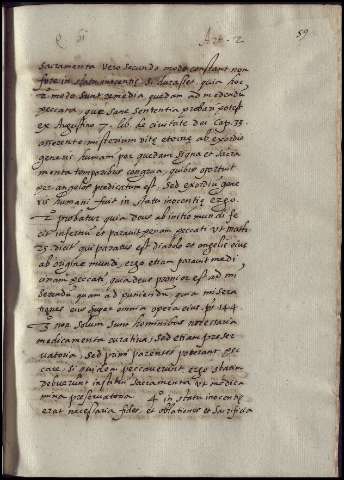 Q 61 Art. 2 59
Sacramenta vero secundo modo constant non
fore in statu inocentie, si durasset, quia hoc
2º modo sunt remedia quedam ad medendu
peccata, que sane sententia probari potest
ex Augustino 7. lib de civitate dei Cap. 33.
asserente misterium vite eterne ab exordio
generis humani per quedam signa et sacra
menta temporibus congrua, quibus oportuit
per angelos predicatum est, Sed exordiu gene
ris humani fuit in statu inocentie ergo.
2º probatur quia Deus ab initio mundi fe
cit infernu et paravit penam peccati ut math
25. dicit qui paratus est diabolo et angelis eius
ab origine mundi, ergo etiam paravit medi
cinam peccati, quia deus pronior est ad mi
serendu quam ad puniendu, quia misera
tiones eius super omnia opera eius. ps. 144.
3º non solum sunt hominibus necessaria
medicamenta curativa, sed etiam preser
vativa, sed primi parentes poterant pec
care, si quidem peccaverunt, ergo etiam
debuerunt institui sacramenta ut medica
mina preservativa 4º in statu inocentie
erat necessaria fides, et oblationes et sacrificia